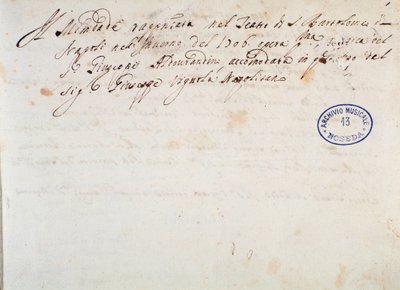 Il Mitridate rapresentata nel Teatro di S. Bartolomeo di
Napoli nell'Inverno del 1706 opera p.ma, musica del
S.r Giuseppe Aldovrandini accomodata in
Sig.r Giuseppe Vignola Napolitano
ARCHIVIO MUSICALE
13
NOSEDA